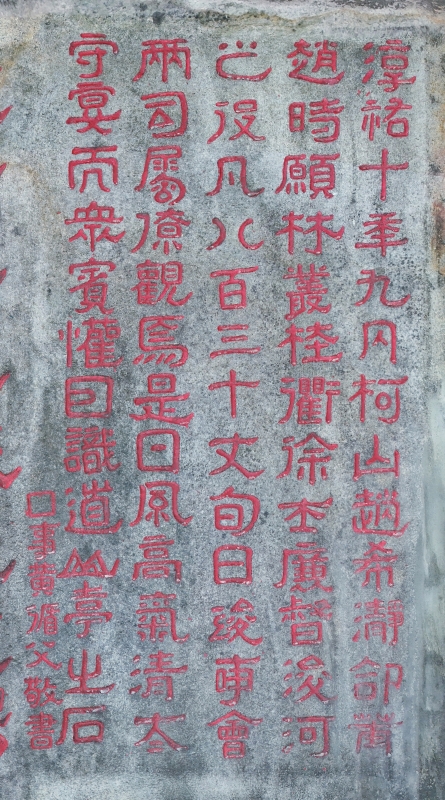 淳祐十年九月柯山趙希瀞命莆
趙時願林叢桂衢徐士廉督浚河
之役凡八百三十丈旬日竣事會
兩司屬僚觀焉是日風高氣清太
守宴而衆賓懽因識道山亭之石
事黃循父敬書